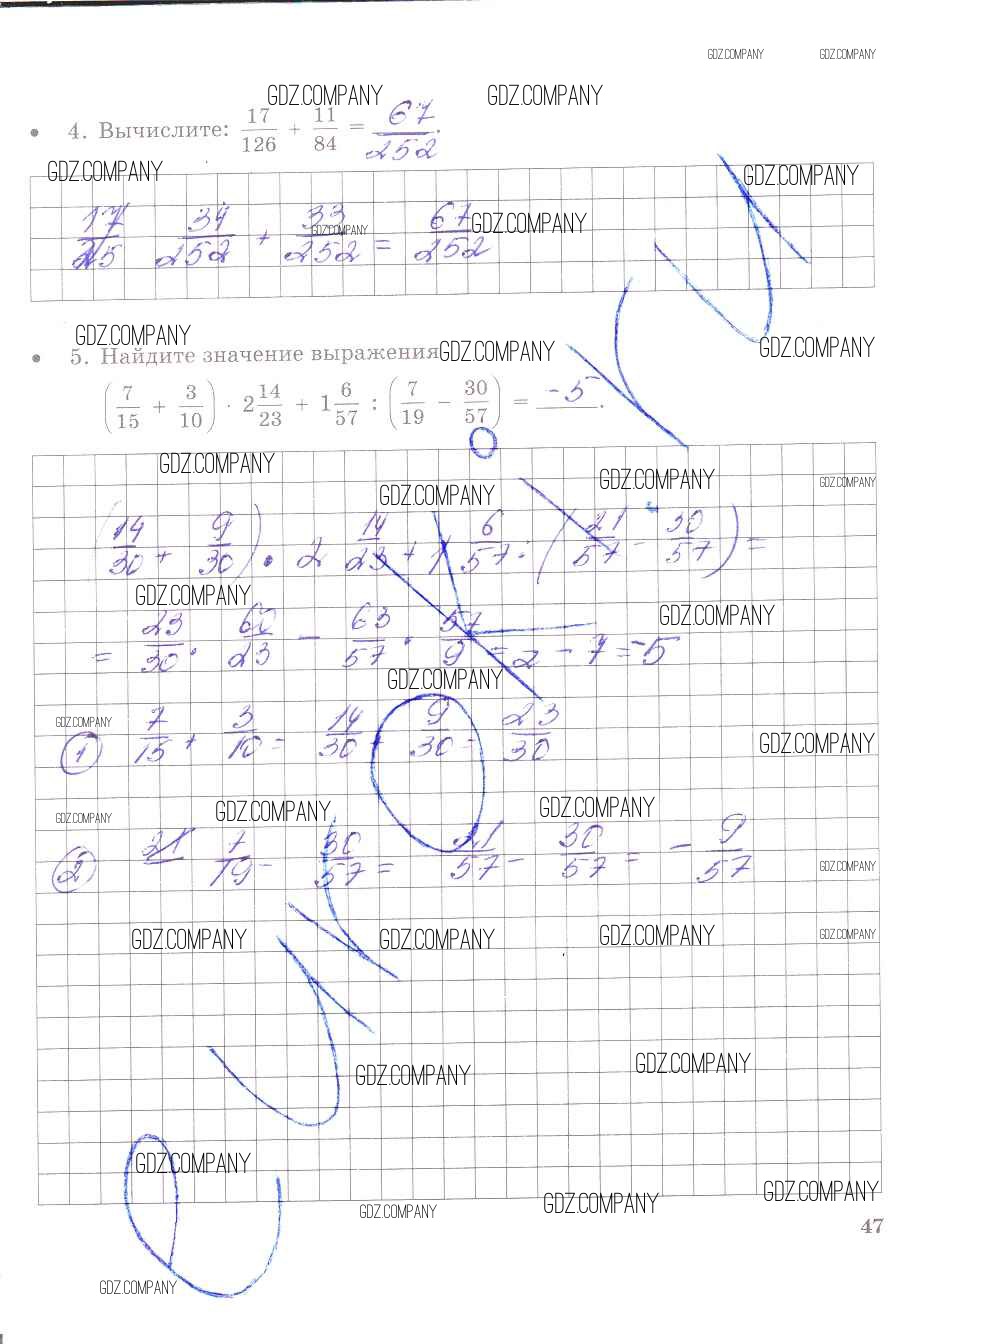 GDZ.COMPANY GDZ.COMPANY
GDZ.COMPANY GDZ.COMPANY
4. Вычислите: 17/126 + 11/84 = 67/252.
GDZ.COMPANY GDZ.COMPANY
34/252 + 33/252 = 67/252
GDZ.COMPANY GDZ.COMPANY
GDZ.COMPANY
5. Найдите значение выражения
GDZ.COMPANY GDZ.COMPANY
(7/15 + 3/10) · 2 14/23 + 1 6/57 : (7/19 − 30/57) = −5.
GDZ.COMPANY
GDZ.COMPANY GDZ.COMPANY GDZ.COMPANY
(14/30 + 9/30) · 2 14/23 + 1 6/57 : (21/57 − 30/57) =
GDZ.COMPANY GDZ.COMPANY
= 23/30 · 60/23 − 63/57 · 57/9 = 2 − 7 = −5
GDZ.COMPANY
GDZ.COMPANY
① 7/15 + 3/10 = 14/30 + 9/30 = 23/30
GDZ.COMPANY
GDZ.COMPANY GDZ.COMPANY GDZ.COMPANY
② 7/19 − 30/57 = 21/57 − 30/57 = − 9/57
GDZ.COMPANY
GDZ.COMPANY GDZ.COMPANY GDZ.COMPANY GDZ.COMPANY
GDZ.COMPANY GDZ.COMPANY
GDZ.COMPANY
GDZ.COMPANY GDZ.COMPANY GDZ.COMPANY
47
GDZ.COMPANY